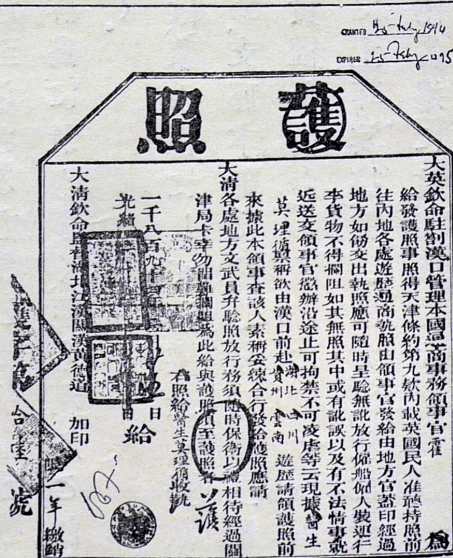 GRANTED 25 Feby 1894
EXPIRES 25 Feby 1895
護照
大英欽命駐劄漢口管理本國通商事務領事官霍 為
給發護照事照得天津條約第九欵內載英國民人准聽持照前
往內地各處遊歷通商執照由領事官發給由地方官蓋印經過
地方如飭交出執照應可隨時呈驗無訛放行僱船僱人裝運行
李貨物不得攔阻如其無照其中或有訛誤以及有不法情事就
近送交領事官懲辦沿途止可拘禁不可凌虐等云現據醫生
莫理循稟稱欲由漢口前赴湖北四川貴州雲南遊歷請領護照前
來據此本領事查該人素稱妥練合行發給護照應請
大清各處地方文武員弁驗照放行務須隨時保衛以禮相待經過關
津局卡幸勿留難攔阻為此給與護照須至護照者
護
右照給醫生莫理循收執
一千八百九十四年 日
光緒 日 給
大清欽命監督湖北江漢關漢黃德道 加印
限一年繳銷